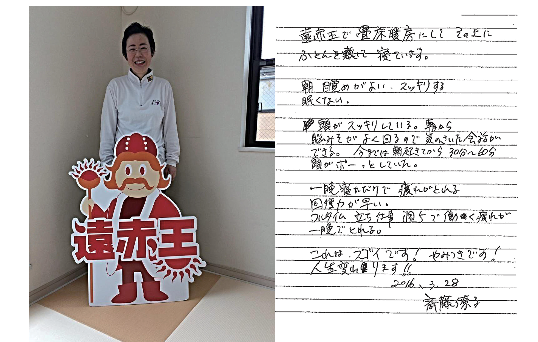 遠赤王
遠赤王で畳床暖房にして その上に
ふとんを敷いて 寝ています。
朝 目覚めがよい、スッキリする
眠くない。
頭がスッキリしている。朝から
脳みそがよく回るので 気のきいた会話が
できる。今までは朝起きてから 30分〜60分
頭がボーっとしていた。
一晩寝ただけで 疲れがとれる
回復力が早い。
フルタイム 立ち仕事 働く疲れが
一晩でとれる。
これは、スゴイです! やみつきです!
人生変わります!!
2016. 3. 28
斎藤